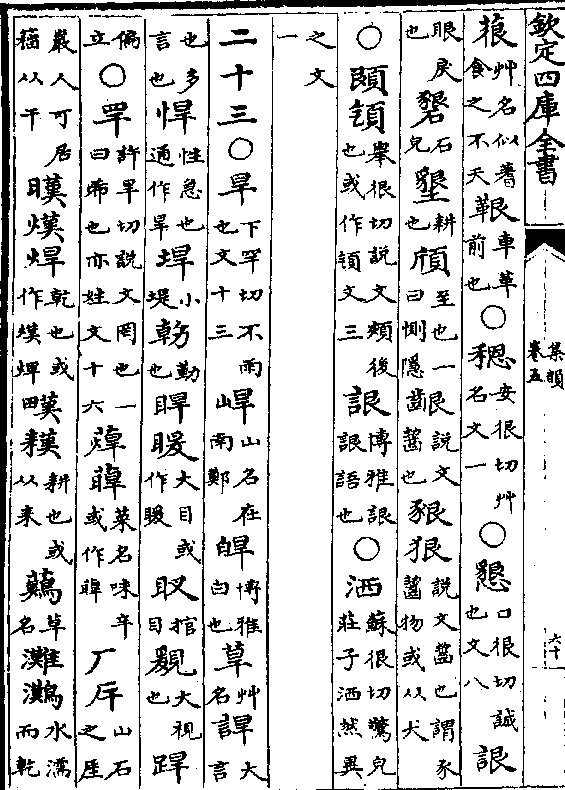 欽定四庫全書
集韻
卷五
六十
䓳艸名似蓍食之不夭䩤車革前也○穏安很切艸名文一○懇口很切誠也文八詪
眼戾也硍石皃墾耕也頎至也一曰惻隱齦說文齧也豤狠說文齧也謂豕齧物或从犬
○頣頜舉很切說文頰後也或作頜文三詪博雅詪詪語也○洒蘇很切驚皃莊子洒然異
之文一
二十三○旱下罕切不雨也文十三㟁山名在南鄭皔博雅白也草艸名䛞大言
也多言也悍性急也通作旱垾小堤勤也睅暖大目或作暖䀗捾目大視也踍
偏立○罕許旱切說文罔也一曰希也亦姓文十六蔊菜名味辛或作厂厈山石之厓
巖人可居籀从干暵熯焊乾也或作熯焊耕也或从耒草名灘灘水濡而乾